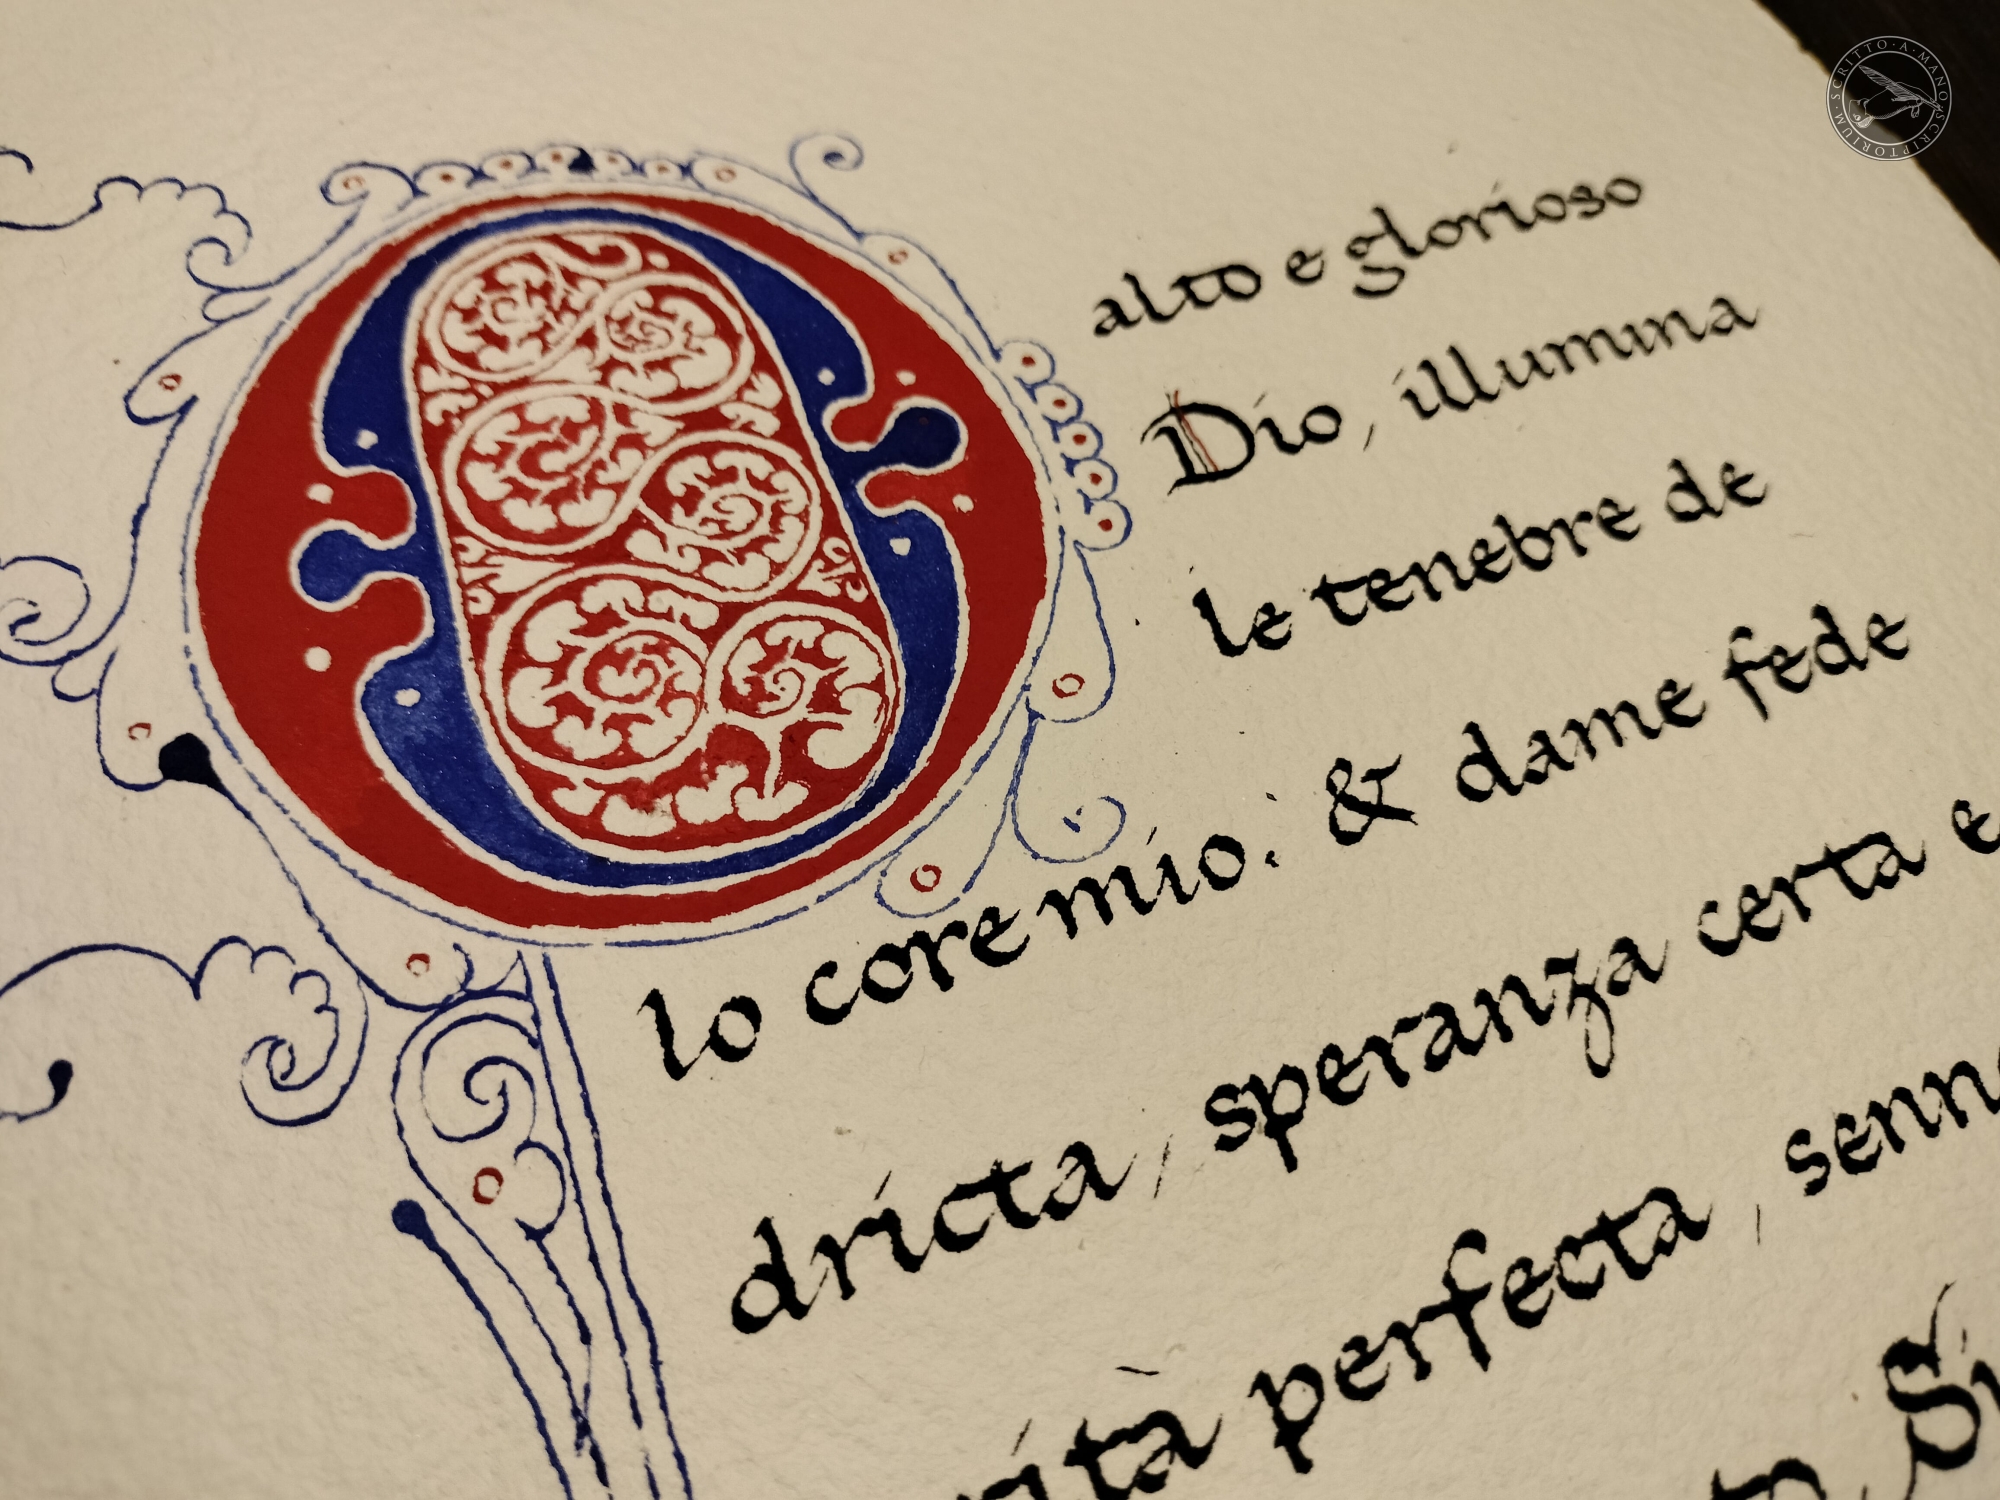 O alto e glorioso
Dio, illumina
le tenebre de
lo core mio: & dame fede
dricta, speranza certa e
perfecta, senn
SCRITTO · A · MANO · SCRIPTORIUM